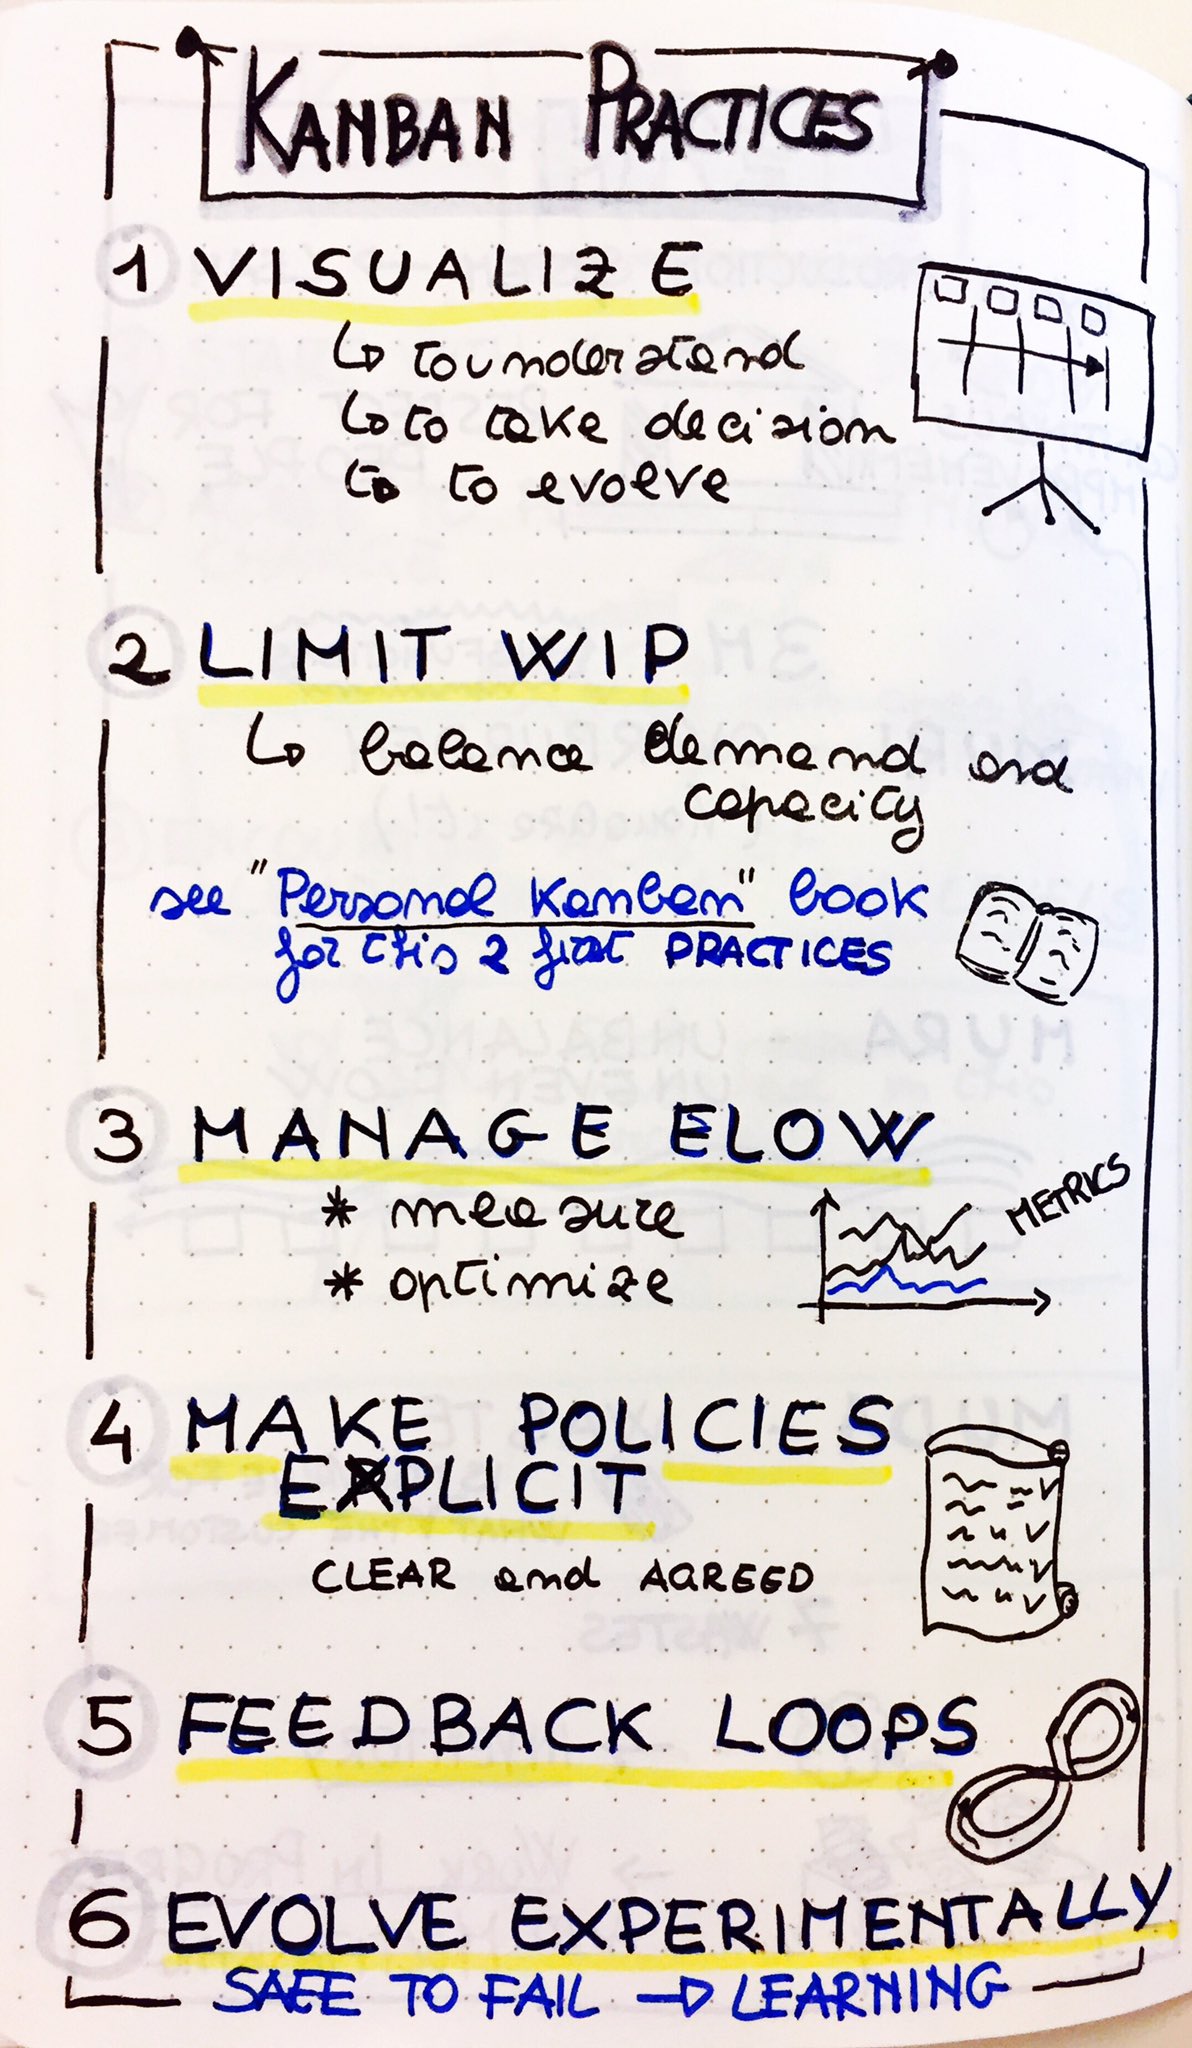 KANBAN PRACTICES
1 VISUALIZE
↳ to understand
↳ to take decision
↳ to evolve
2 LIMIT WIP
↳ balance demand and
capacity
see "Personal Kanban" book
for this 2 first PRACTICES
3 MANAGE FLOW
* measure
METRICS
* optimize
4 MAKE POLICIES
EXPLICIT
CLEAR and AGREED
5 FEEDBACK LOOPS
6 EVOLVE EXPERIMENTALLY
SAFE TO FAIL → LEARNING